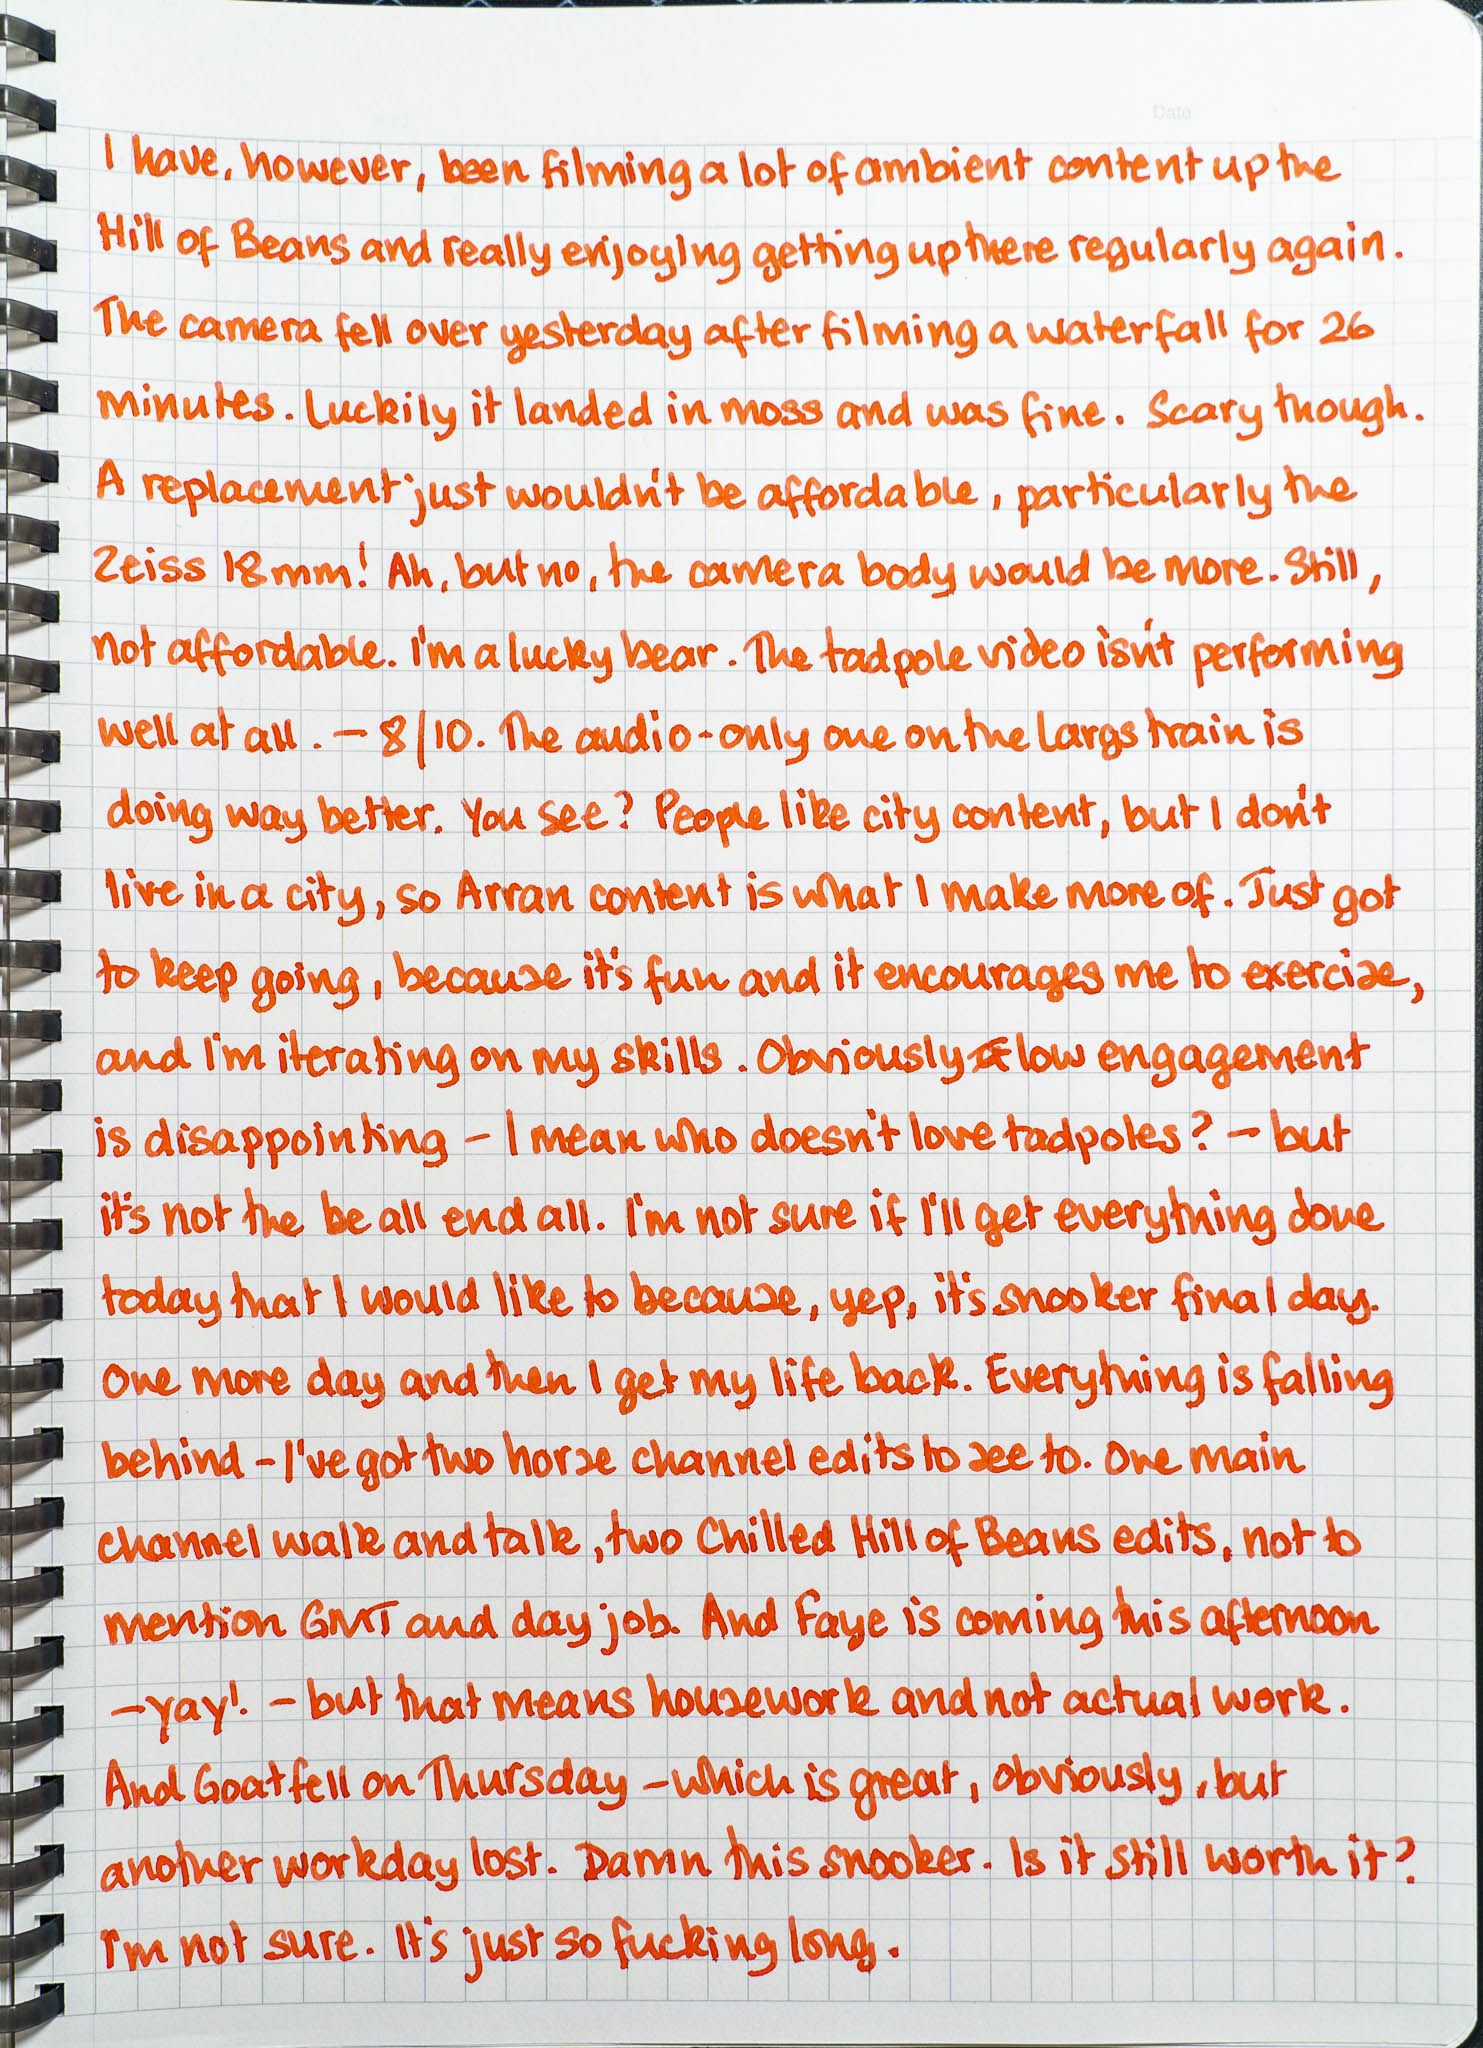 Date
I have, however, been filming a lot of ambient content up the
Hill of Beans and really enjoying getting up there regularly again.
The camera fell over yesterday after filming a waterfall for 26
minutes. Luckily it landed in moss and was fine. Scary though.
A replacement just wouldn't be affordable, particularly the
Zeiss 18mm! Ah, but no, the camera body would be more. Still,
not affordable. I'm a lucky bear. The tadpole video isn't performing
well at all. – 8/10. The audio-only one on the Largs train is
doing way better. You see? People like city content, but I don't
live in a city, so Arran content is what I make more of. Just got
to keep going, because it's fun and it encourages me to exercise,
and I'm iterating on my skills. Obviously low engagement
is disappointing – I mean who doesn't love tadpoles? – but
it's not the be all end all. I'm not sure if I'll get everything done
today that I would like to because, yep, it's snooker final day.
One more day and then I get my life back. Everything is falling
behind – I've got two horse channel edits to see to. One main
channel walk and talk, two Chilled Hill of Beans edits, not to
mention GMT and day job. And Faye is coming this afternoon
– yay! – but that means housework and not actual work.
And Goatfell on Thursday – which is great, obviously, but
another workday lost. Damn this snooker. Is it still worth it?
I'm not sure. It's just so fucking long.